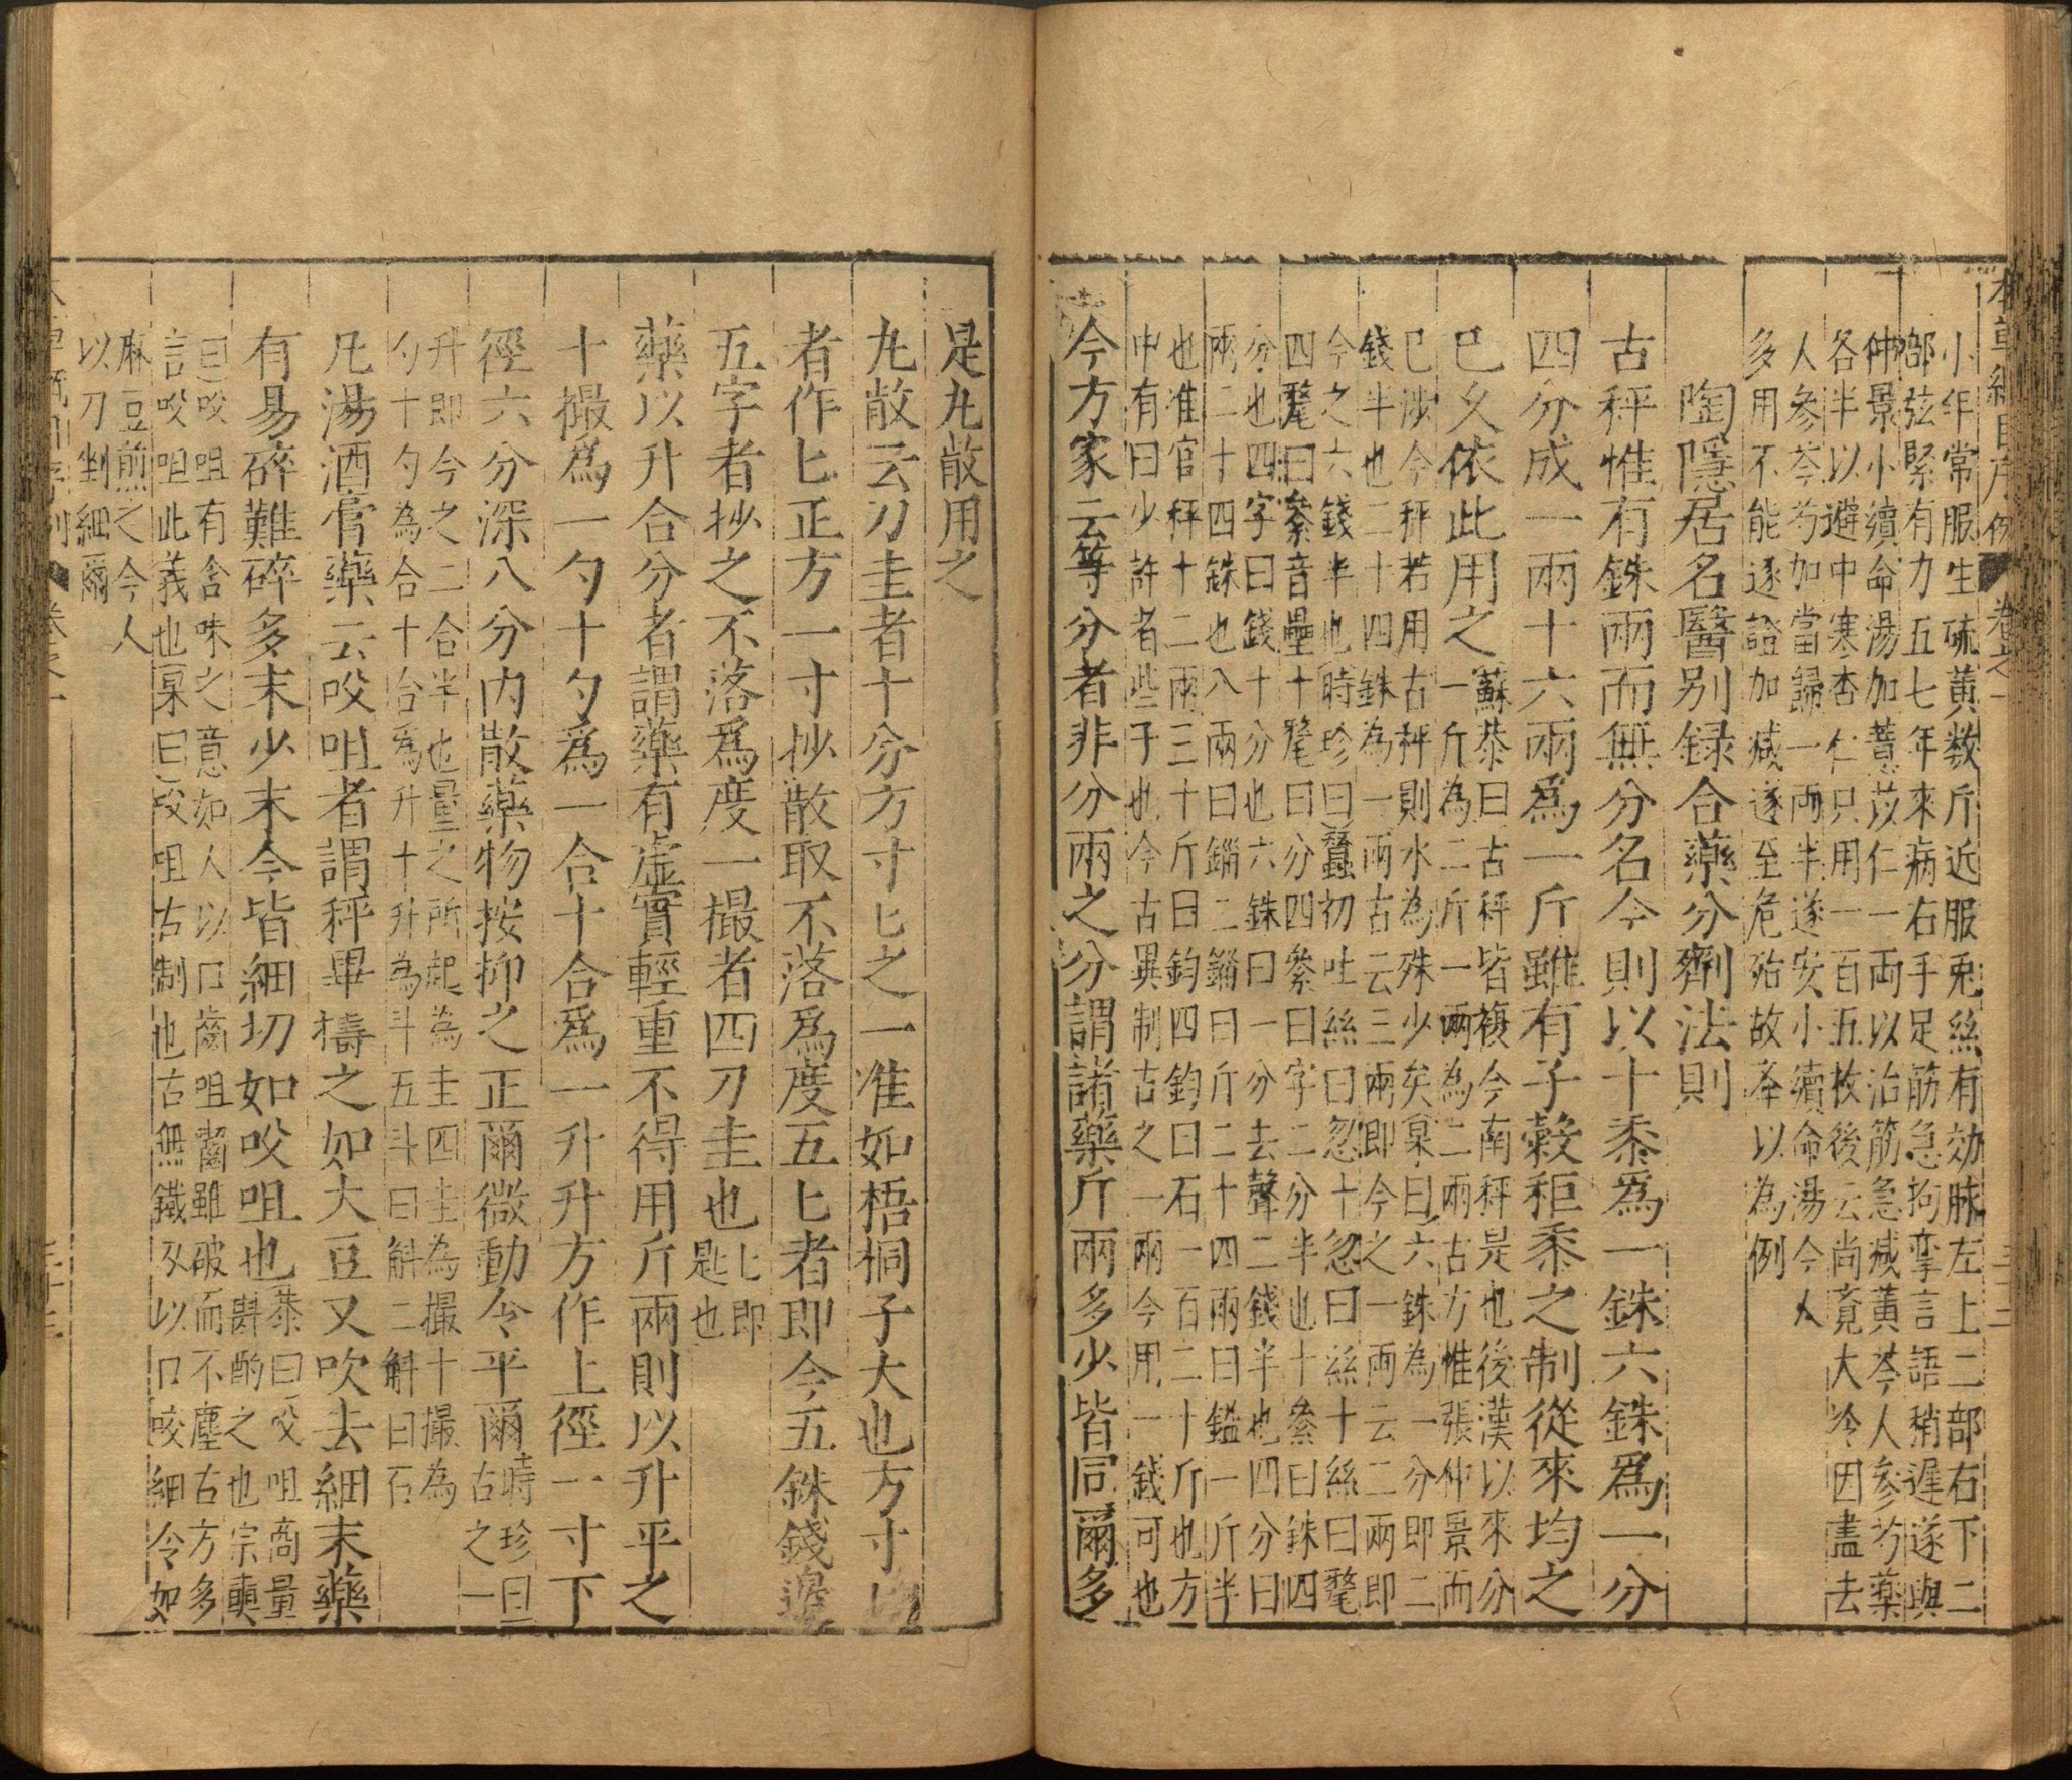 本草綱目序例 卷之一
小年常服生硫黃數斤近服兎絲有効脉左上二部右下二
部弦緊有力五七年來病右手足筋急拘攣言語稍遲遂與
仲景小續命湯加薏苡仁一兩以治筋急减黃芩人參芍藥
各半以避中寒杏仁只用一百五枚後云尚覺大冷因盡去
人參芩芍加當歸一兩半遂安小續命湯今人
多用不能逐證加减遂至危殆故舉以為例
陶隱居名醫别録合藥分劑法則
古秤惟有銖兩而無分名今則以十黍為一銖六銖爲一分
四分成一兩十六兩爲一斤雖有子穀秬黍之制從來均之
已久依此用之
蘇恭曰古秤皆複今南秤是也後漢以來分
一斤為二斤一兩為二兩古方惟張仲景而
已涉今秤若用古秤則水為殊少矣杲曰六銖為一分即二
錢半也二十四銖為一兩古云三兩即今之一兩云二兩即
今之六錢半也時珍曰蠶初吐絲曰忽十忽曰絲十絲曰氂
四氂曰絫音壘十氂曰分四絫曰字二分半也十絫曰銖四
分也四字曰錢十分也六銖曰一分去聲二錢半也四分曰
兩二十四銖也八兩曰錙二錙曰斤二十四兩曰鎰一斤半
也准官秤十二兩三十斤曰鈞四鈞曰石一百二十斤也方
中有曰少許者些子也今古異制古之一兩今用一錢可也
今方家云等分者非分兩之分謂諸藥斤兩多少皆同爾多
是丸散用之
丸散云刀圭者十分方寸匕之一准如梧桐子大也方寸匕
者作匕正方一寸抄散取不落爲度五匕者即今五銖錢邊
五字者抄之不落爲度一撮者四刀圭也
匕即
匙也
藥以升合分者謂藥有虚實輕重不得用斤兩則以升平之
十撮爲一勺十勺爲一合十合爲一升升方作上徑一寸下
徑六分深八分内散藥物按抑之正爾微動令平爾
時珍曰
古之一
升即今之二合半也量之所起為圭四圭為撮十撮為
勺十勺為合十合爲升十升為斗五斗曰斛二斛曰石
凡湯酒膏藥云㕮咀者謂秤畢擣之如大豆又吹去細末藥
有易碎難碎多末少末今皆細切如㕮咀也
恭曰㕮咀商量
斟酌之也宗奭
曰㕮咀有含味之意如人以口齒咀齧雖破而不塵古方多
言㕮咀此義也杲曰㕮咀古制也古無鐵刃以口咬細令如
麻豆煎之今人
以刀剉細爾